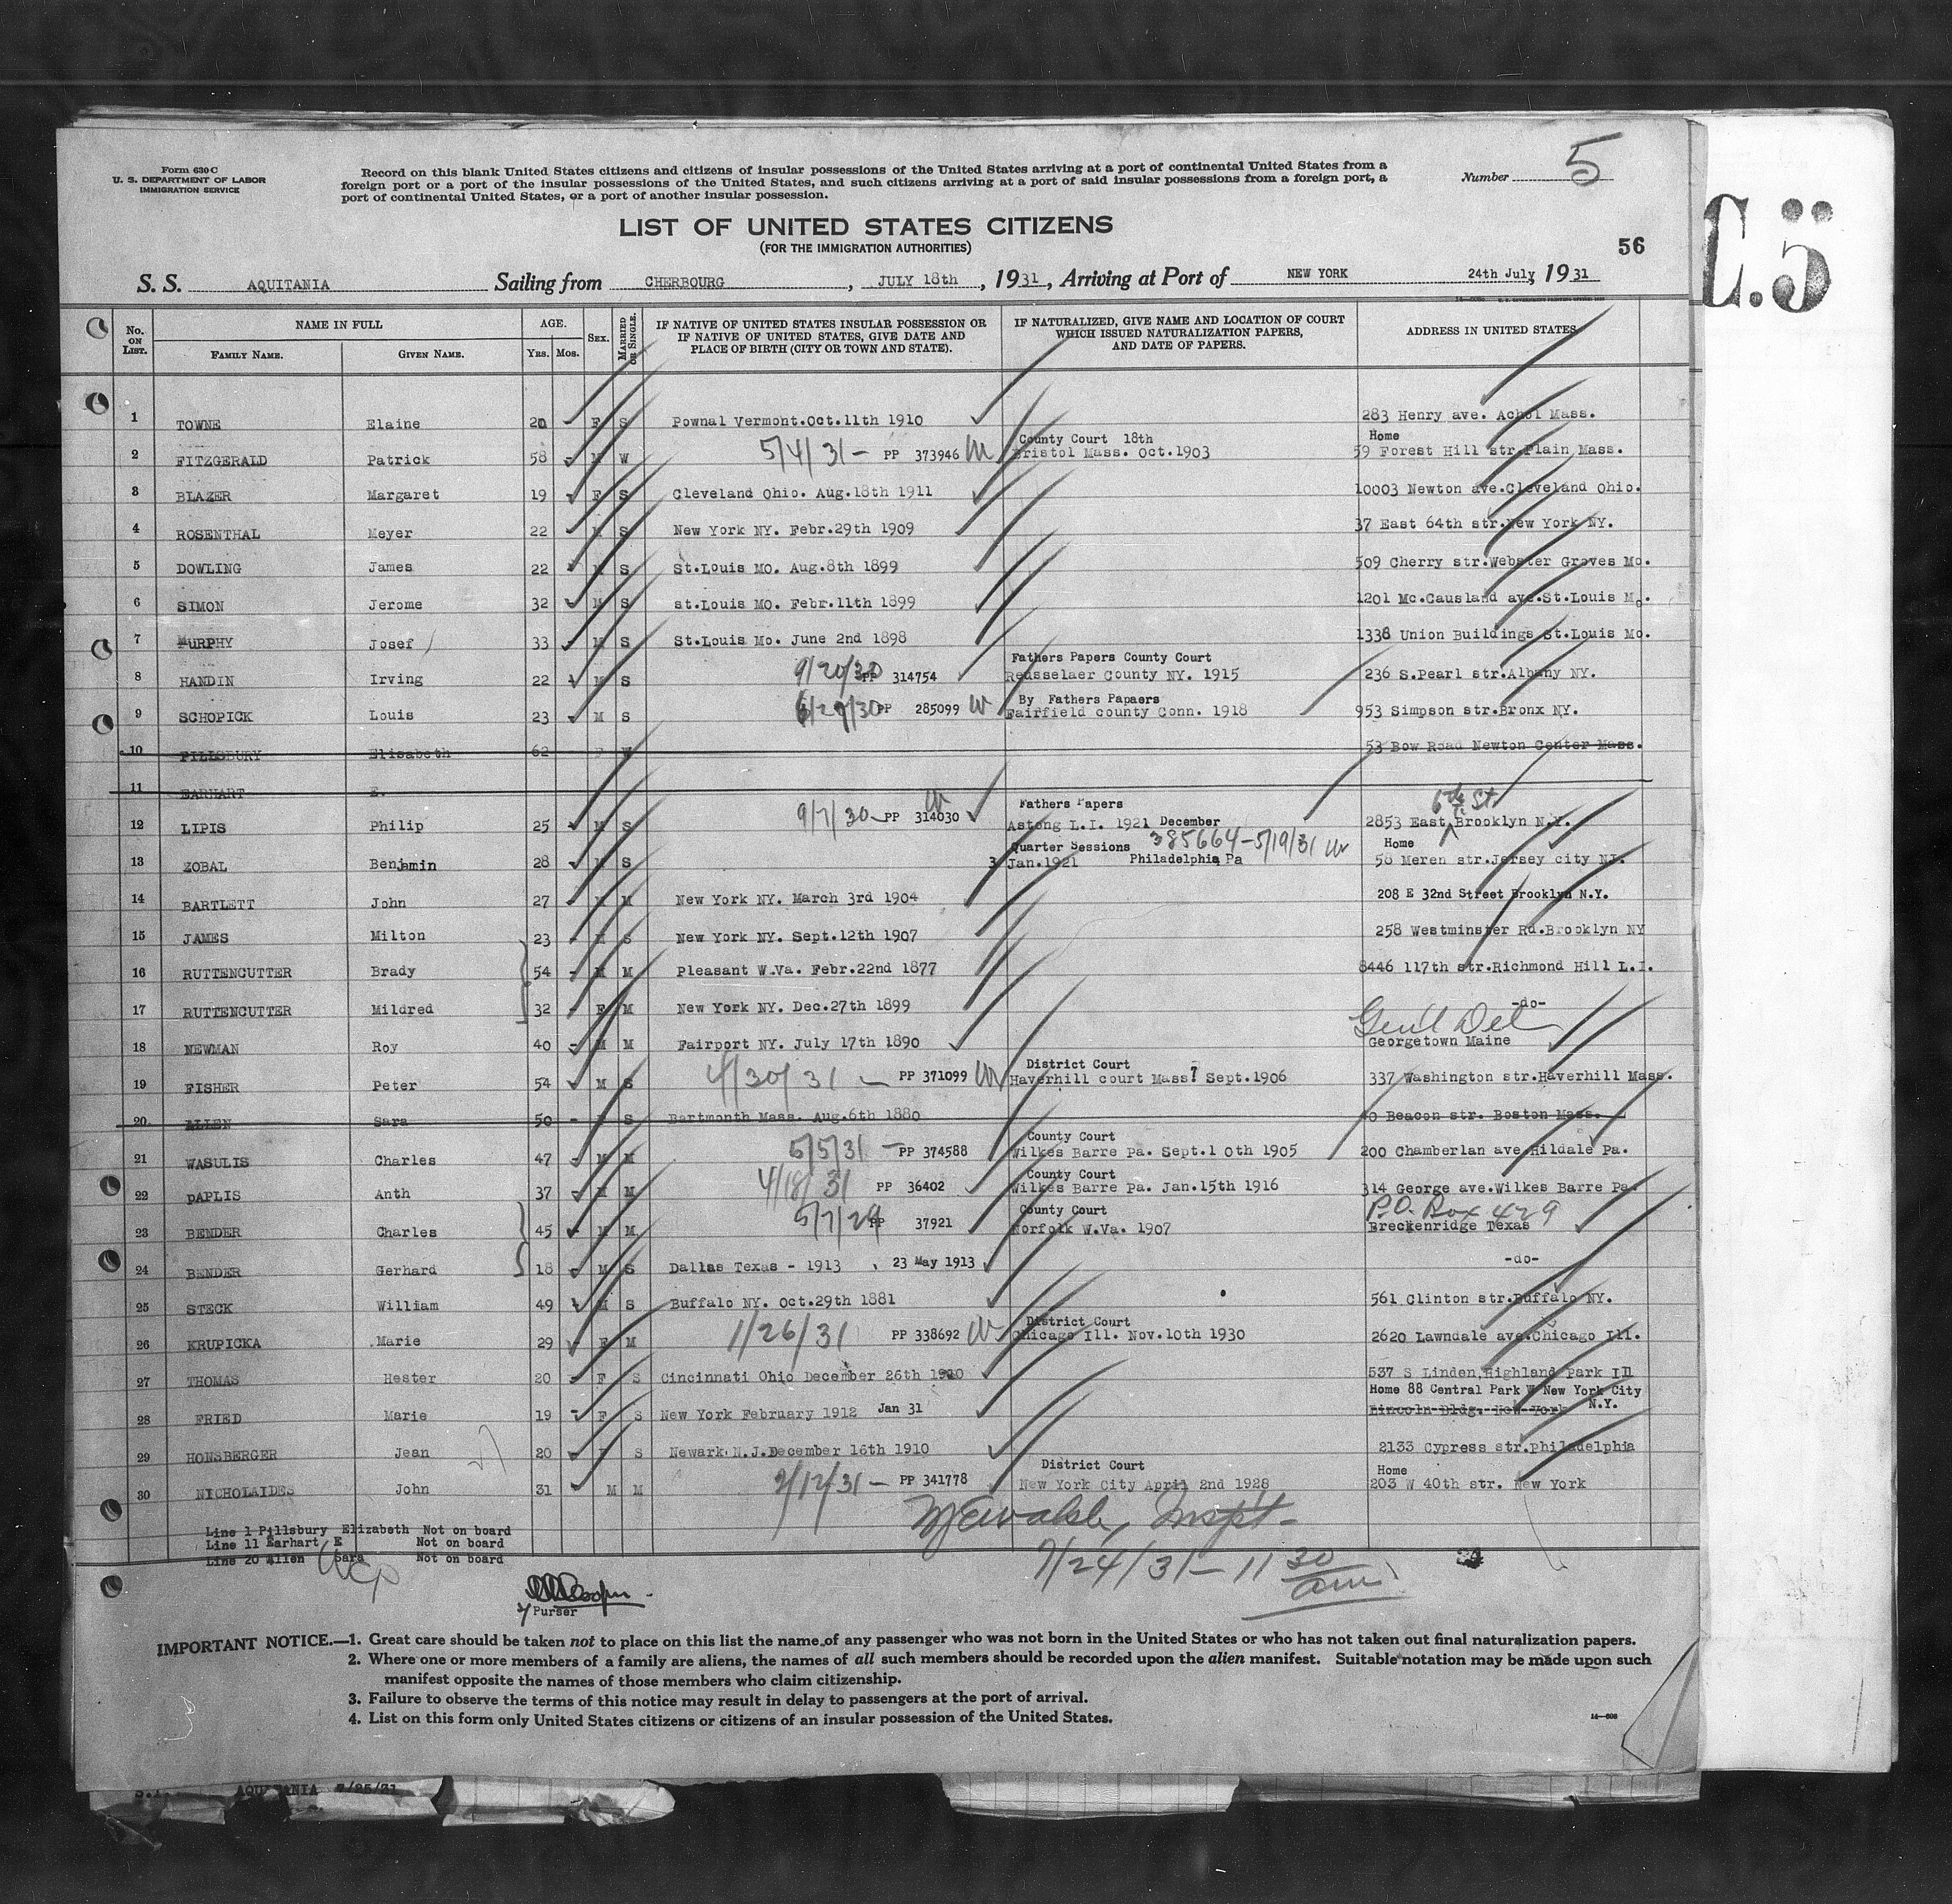 Form 630 C
U. S. DEPARTMENT OF LABOR
IMMIGRATION SERVICE
Record on this blank United States citizens and citizens of insular possessions of the United States arriving at a port of continental United States from a
foreign port or a port of the insular possessions of the United States, and such citizens arriving at a port of said insular possessions from a foreign port, a
port of continental United States, or a port of another insular possession.
Number 5
C.5
LIST OF UNITED STATES CITIZENS
(FOR THE IMMIGRATION AUTHORITIES)
56
S. S. AQUITANIA Sailing from CHERBOURG, JULY 18th, 1931, Arriving at Port of NEW YORK 24th July, 1931
No. ON LIST. NAME IN FULL FAMILY NAME. GIVEN NAME. AGE. Yrs. Mos. SEX. MARRIED OR SINGLE. IF NATIVE OF UNITED STATES INSULAR POSSESSION OR IF NATIVE OF UNITED STATES, GIVE DATE AND PLACE OF BIRTH (CITY OR TOWN AND STATE). IF NATURALIZED, GIVE NAME AND LOCATION OF COURT WHICH ISSUED NATURALIZATION PAPERS, AND DATE OF PAPERS. ADDRESS IN UNITED STATES
1 TOWNE Elaine 20 F S Pownal Vermont.Oct.11th 1910 283 Henry ave. Achol Mass.
County Court 18th Home
2 FITZGERALD Patrick 58 M W 5/4/31- PP 373946 Bristol Mass. Oct.1903 59 Forest Hill str.Plain Mass.
3 BLAZER Margaret 19 F S Cleveland Ohio. Aug.18th 1911 10003 Newton ave.Cleveland Ohio.
4 ROSENTHAL Meyer 22 M S New York NY. Febr.29th 1909 37 East 64th str.New York NY.
5 DOWLING James 22 M S St.Louis MO. Aug.8th 1899 509 Cherry str.Webster Groves Mo.
6 SIMON Jerome 32 M S st.Louis MO. Febr.11th 1899 1201 Mc.Causland ave.St.Louis Mo.
7 MURPHY Josef 33 M S St.Louis Mo. June 2nd 1898 1338 Union Buildings St.Louis Mo.
Fathers Papers County Court
8 HANDIN Irving 22 M S 9/20/30 PP 314754 Reusselaer County NY. 1915 236 S.Pearl str.Albany NY.
By Fathers Papaers
9 SCHOPICK Louis 23 M S 6/29/30 PP 285099 Fairfield county Conn. 1918 953 Simpson str.Bronx NY.
10 PILLSBURY Elisabeth 62 F W 53 Bow Road Newton Center Mass.
11 EARHART E.
Fathers Papers 6th St.
12 LIPIS Philip 25 M S 9/7/30- PP 314030 Astong L.I. 1921 December 2853 East Brooklyn N.Y.
Quarter Sessions 385664-5/19/31 Home
13 ZOBAL Benjamin 28 M S 3 Jan.1921 Philadelphia Pa 58 Meren str.Jersey city NJ.
14 BARTLETT John 27 M M New York NY. March 3rd 1904 208 E 32nd Street Brooklyn N.Y.
15 JAMES Milton 23 M S New York NY. Sept.12th 1907 258 Westminster Rd.Brooklyn NY
16 RUTTENCUTTER Brady 54 M M Pleasant W.Va. Febr.22nd 1877 8446 117th str.Richmond Hill L.I.
17 RUTTENCUTTER Mildred 32 F M New York NY. Dec.27th 1899 -do-
Gen'l Del
18 NEWMAN Roy 40 M M Fairport NY. July 17th 1890 Georgetown Maine
District Court
19 FISHER Peter 54 M S 4/30/31 PP 371099 Haverhill court Mass? Sept.1906 337 Washington str.Haverhill Mass.
20 ALLEN Sara 50 F S Dartmonth Mass. Aug.6th 1880 40 Beacon str. Boston Mass.
County Court
21 WASULIS Charles 47 M M 5/5/31 - PP 374588 Wilkes Barre Pa. Sept.1 0th 1905 200 Chamberlan ave Hildale Pa.
County Court
22 DAPLIS Anth 37 M M 4/18/31 PP 36402 Wilkes Barre Pa. Jan.15th 1916 314 George ave.Wilkes Barre Pa.
County Court P.O. Box 429
23 BENDER Charles 45 M M 5/7/29 PP 37921 Norfolk W.Va. 1907 Breckenridge Texas
24 BENDER Gerhard 18 M S Dallas Texas - 1913 , 23 May 1913 -do-
25 STECK William 49 M S Buffalo NY. Oct.29th 1881 561 Clinton str.Buffalo NY.
District Court
26 KRUPICKA Marie 29 F M 1/26/31 PP 338692 Chicago Ill. Nov.10th 1930 2620 Lawndale ave.Chicago Ill.
27 THOMAS Hester 20 F S Cincinnati Ohio December 26th 1910 537 S Linden Highland Park Ill
Home 88 Central Park W New York City
28 FRIED Marie 19 F S New York February 1912 Jan 31 Lincoln Bldg. New York N.Y.
29 HONSBERGER Jean 20 F S Newark N.J.December 16th 1910 2133 Cypress str.philadelphia
District Court Home
30 NICHOLAIDES John 31 M M 2/12/31- PP 341778 New York City April 2nd 1928 203 W 40th str. New York
Line 1 Pillsbury Elizabeth Not on board
Line 11 Earhart E Not on board
Line 20 Allen Sara Not on board
Inspt-
7/24/31- 11 30 am
Purser
IMPORTANT NOTICE.—1. Great care should be taken not to place on this list the name of any passenger who was not born in the United States or who has not taken out final naturalization papers.
2. Where one or more members of a family are aliens, the names of all such members should be recorded upon the alien manifest. Suitable notation may be made upon such
manifest opposite the names of those members who claim citizenship.
3. Failure to observe the terms of this notice may result in delay to passengers at the port of arrival.
4. List on this form only United States citizens or citizens of an insular possession of the United States.
AQUITANIA 7/25/31